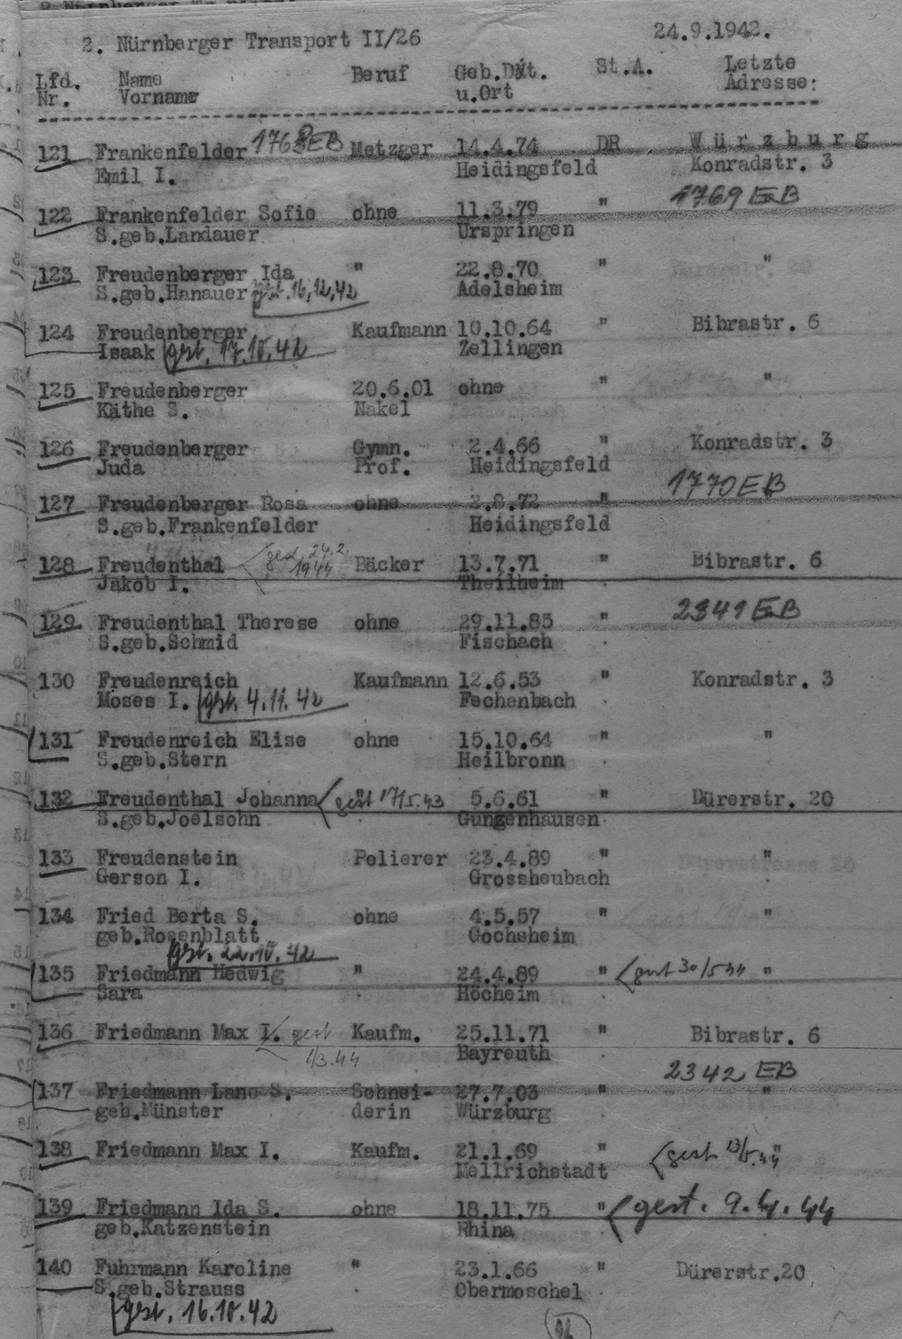 2. Nürnberger Transport II/26 24.9.1942.
Lfd. Name Beruf Geb.Dat. St.A. Letzte
Nr. Vorname u.Ort Adresse:
121 Frankenfelder 1768EB Metzger 14.4.74 DR Würzburg
Emil I. Heidingsfeld Konradstr. 3
1769 EB
122 Frankenfelder Sofie ohne 11.3.79 "
S.geb.Landauer Urspringen
123 Freudenberger Ida " 22.8.70 " "
S.geb.Hanauer gest. 16,12,42 Adelsheim
124 Freudenberger Kaufmann 10.10.64 " Bibrastr. 6
Isaak gest. 17.10.42 Zellingen
125 Freudenberger 20.6.01 ohne " "
Käthe S. Nakel
126 Freudenberger Gymn. 2.4.66 " Konradstr. 3
Juda Prof. Heidingsfeld
1770 EB
127 Freudenberger Rosa ohne 2.8.72 "
S.geb.Frankenfelder Heidingsfeld
128 Freudenthal gest. 24.2. 1944 Bäcker 13.7.71 " Bibrastr. 6
Jakob I. Theilheim
2341 EB
129 Freudenthal Therese ohne 29.11.85 "
S.geb.Schmid Fischach
130 Freudenreich Kaufmann 12.6.53 " Konradstr. 3
Moses I. gest. 4.11.42 Fechenbach
131 Freudenreich Elise ohne 15.10.64 " "
S.geb.Stern Heilbronn
132 Freudenthal Johanna gest 17/5.43 " 5.6.61 " Dürerstr. 20
S.geb.Joelsohn Gunzenhausen
133 Freudenstein Polierer 23.4.89 " "
Gerson I. Grossheubach
134 Fried Berta S. ohne 4.5.57 " "
geb.Rosenblatt Gochsheim
gest. 22.10.42
135 Friedmann Hedwig " 24.4.89 " gest 30/5 44 "
Sara Höcheim
136 Friedmann Max I. gest Kaufm. 25.11.71 " Bibrastr. 6
1/3.44 Bayreuth
2342 EB
137 Friedmann Lane S. Schnei- 27.7.03 " "
geb.Münster derin Würzburg
138 Friedmann Max I. Kaufm. 21.1.69 " gest 13/5.44 "
Mellrichstadt
139 Friedmann Ida S. ohne 18.11.75 " gest. 9.4.44
geb.Katzenstein Rhina
140 Fuhrmann Karoline " 23.1.66 " Dürerstr.20
S.geb.Strauss Obermoschel
gest. 16.10.42